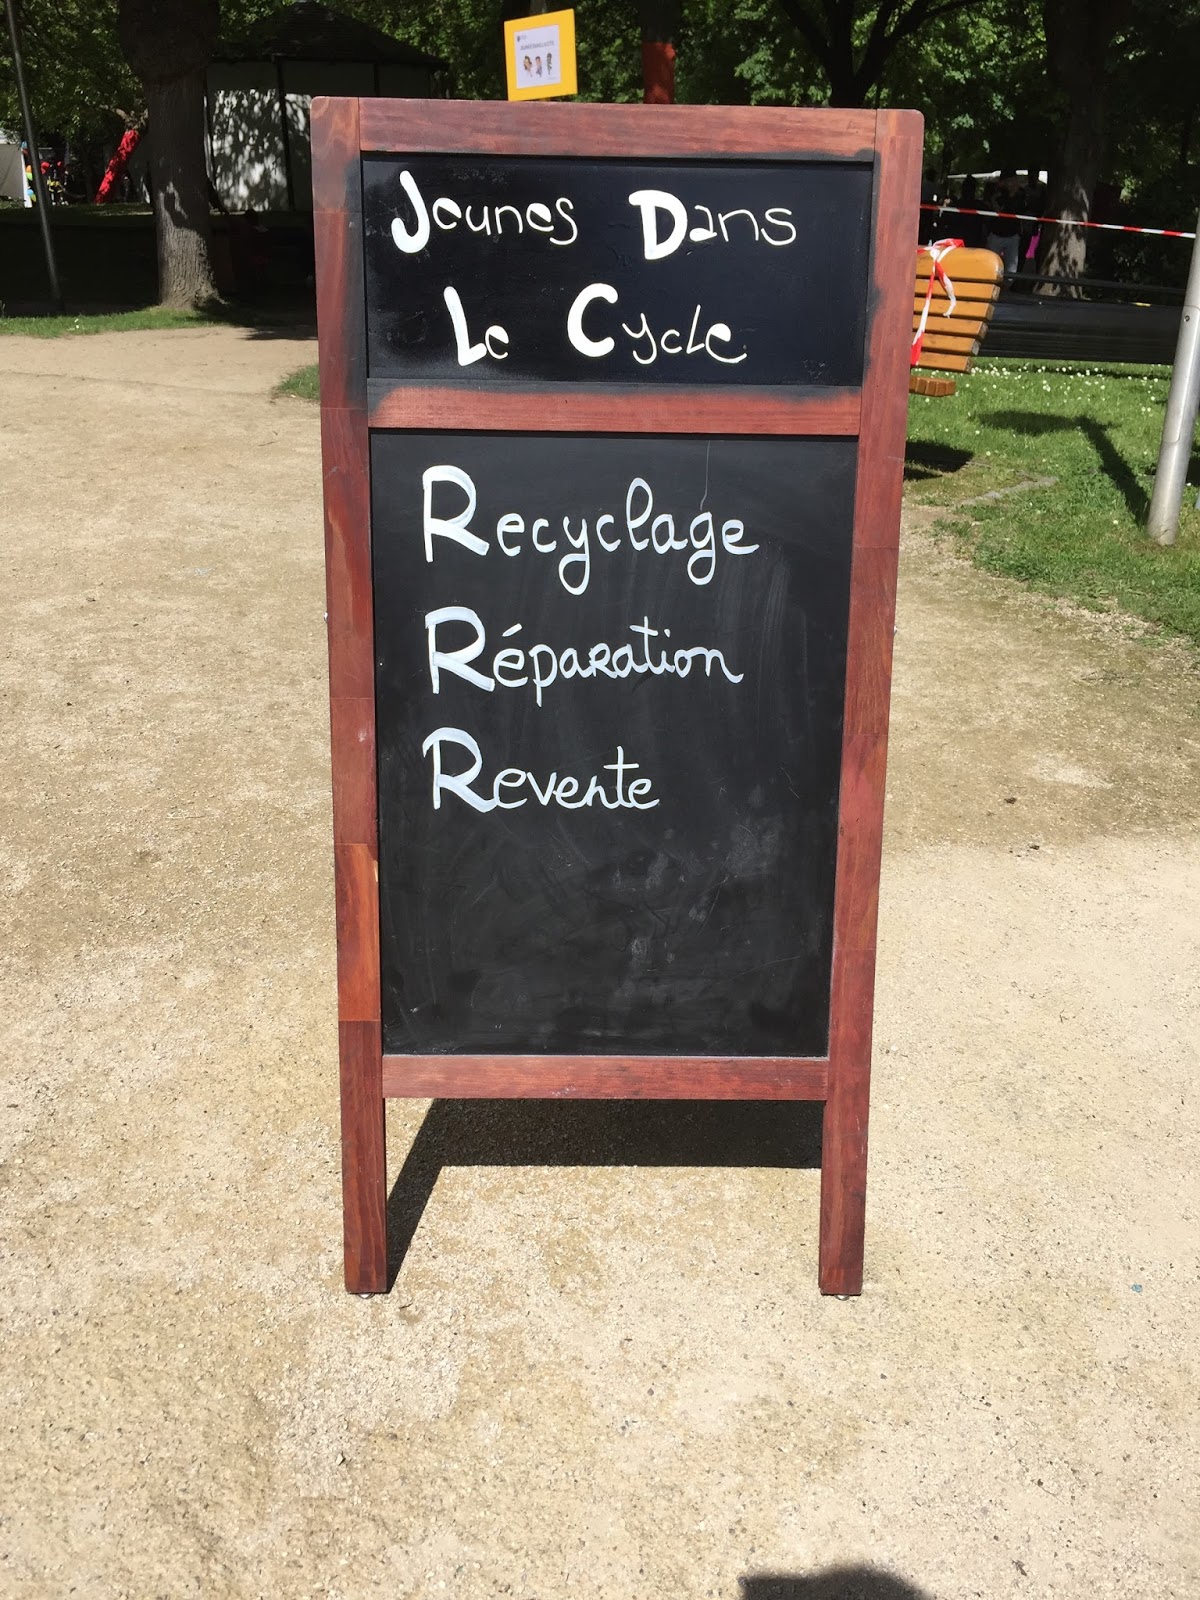 Jeunes Dans
Le Cycle
Recyclage
Réparation
Revente